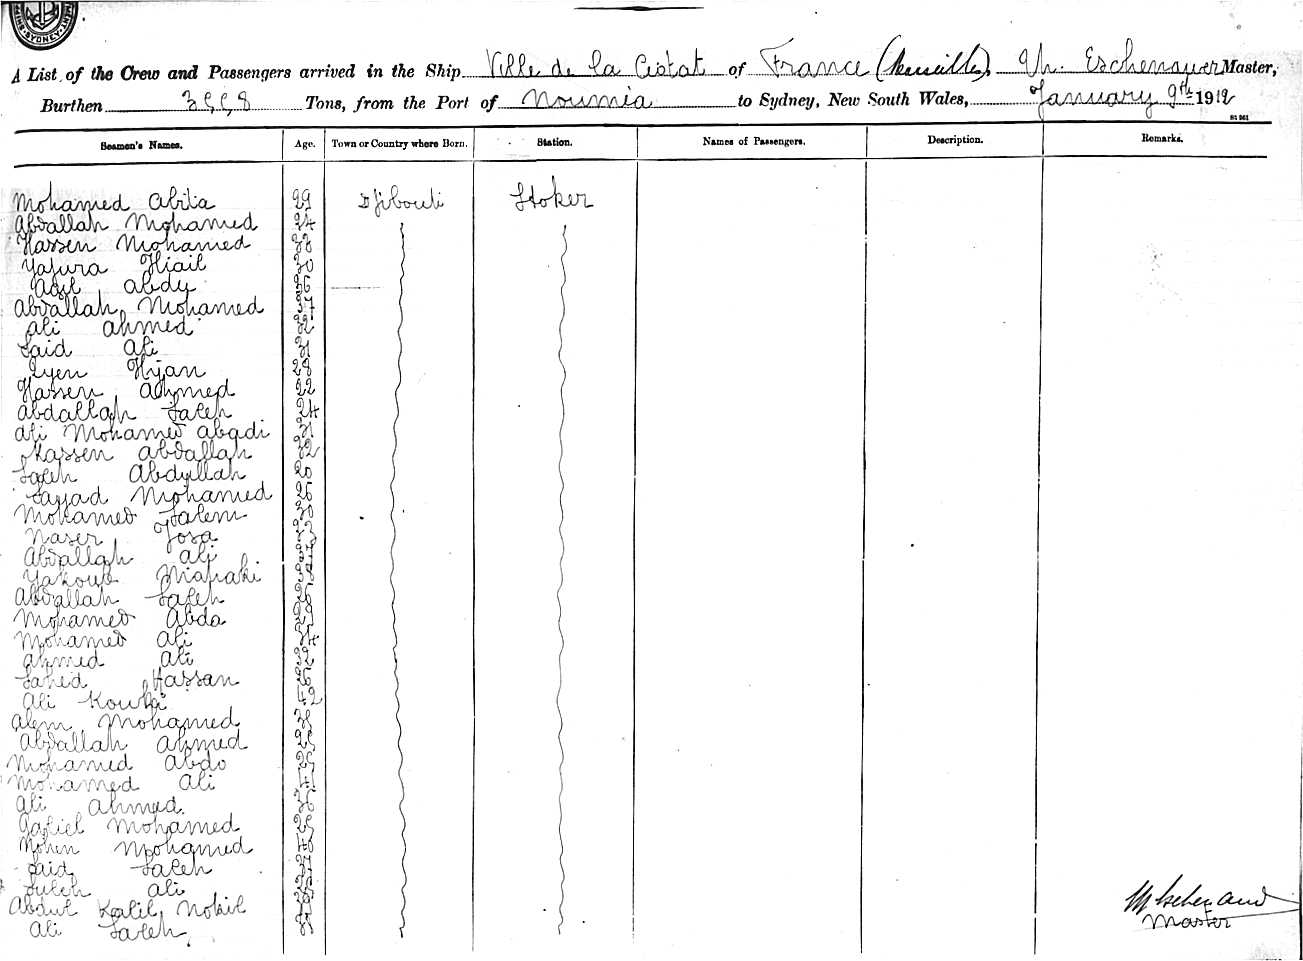 SYDNEY
A List of the Crew and Passengers arrived in the Ship Ville de la Ciotat of France (Marseille), Ch. Eschenauer Master,
Burthen Tons, from the Port of Noumia to Sydney, New South Wales, January 9th 1912
Seamen's Names. Age. Town or Country where Born. Station. Names of Passengers. Description. Remarks.
Mohamed Abita 29 Djibouti Stoker
Abdallah Mohamed 24
Hassen Mohamed
Hiail 30
Adil Abdy 36
Abdallah Mohamed 37
Ali Ahmed 32
Said Ali 31
Hijan 28
Hassen Ahmed 22
Abdallah Saleh 24
Ali Mohamed Abadi 31
Hassen Abdallah 32
Saleh Abdullah 20
Sayad Mohamed 26
Mohamed Salem 30
Naser Josa
Abdallah Ali 37
Yakoub 38
Abdallah Saleh 26
Mohamed Abda
Mohamed Ali
Ahmed Ali 32
Sahed Hassan 26
Ali 42
Alem Mohamed
Abdallah Ahmed
Mohamed Abdo
Mohamed Ali 41
Ali Ahmed
Mohamed
Mohen Mohamed 40
Said Saleh
Saleh Ali
Abdul Kalil
Ali Saleh
Master